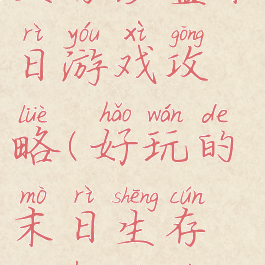 rì yóu xì gōng
日游戏攻
lüè hǎo wán de
略(好玩的
mò rì shēng cún
末日生存